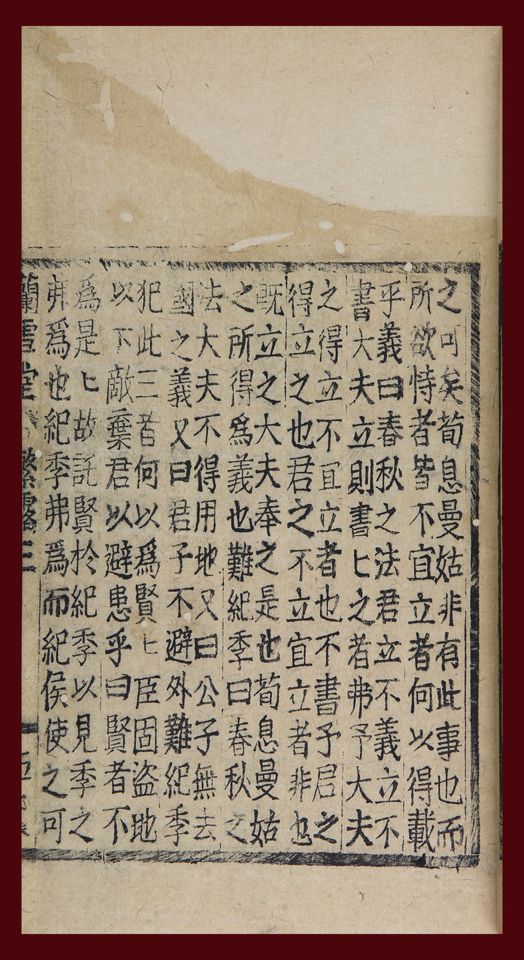 之可矣荀息曼姑非有此事也而
所欲恃者皆不宜立者何以得載
乎義曰春秋之法君立不義立不
書大夫立則書匕之者弗予大夫
之得立不宜立者也不書予君之
得立之也君之不立宜立者非也
既立之大夫奉之是也荀息曼姑
之所得爲義也難紀季曰春秋之
法大夫不得用地又曰公子無去
國之義又曰君子不避外難紀季
犯此三者何以爲賢匕臣固盗地
以下敵棄君以避患乎曰賢者不
爲是匕故託賢於紀季以見季之
弗爲也紀季弗爲而紀侯使之可
蘭雪堂 繁露三